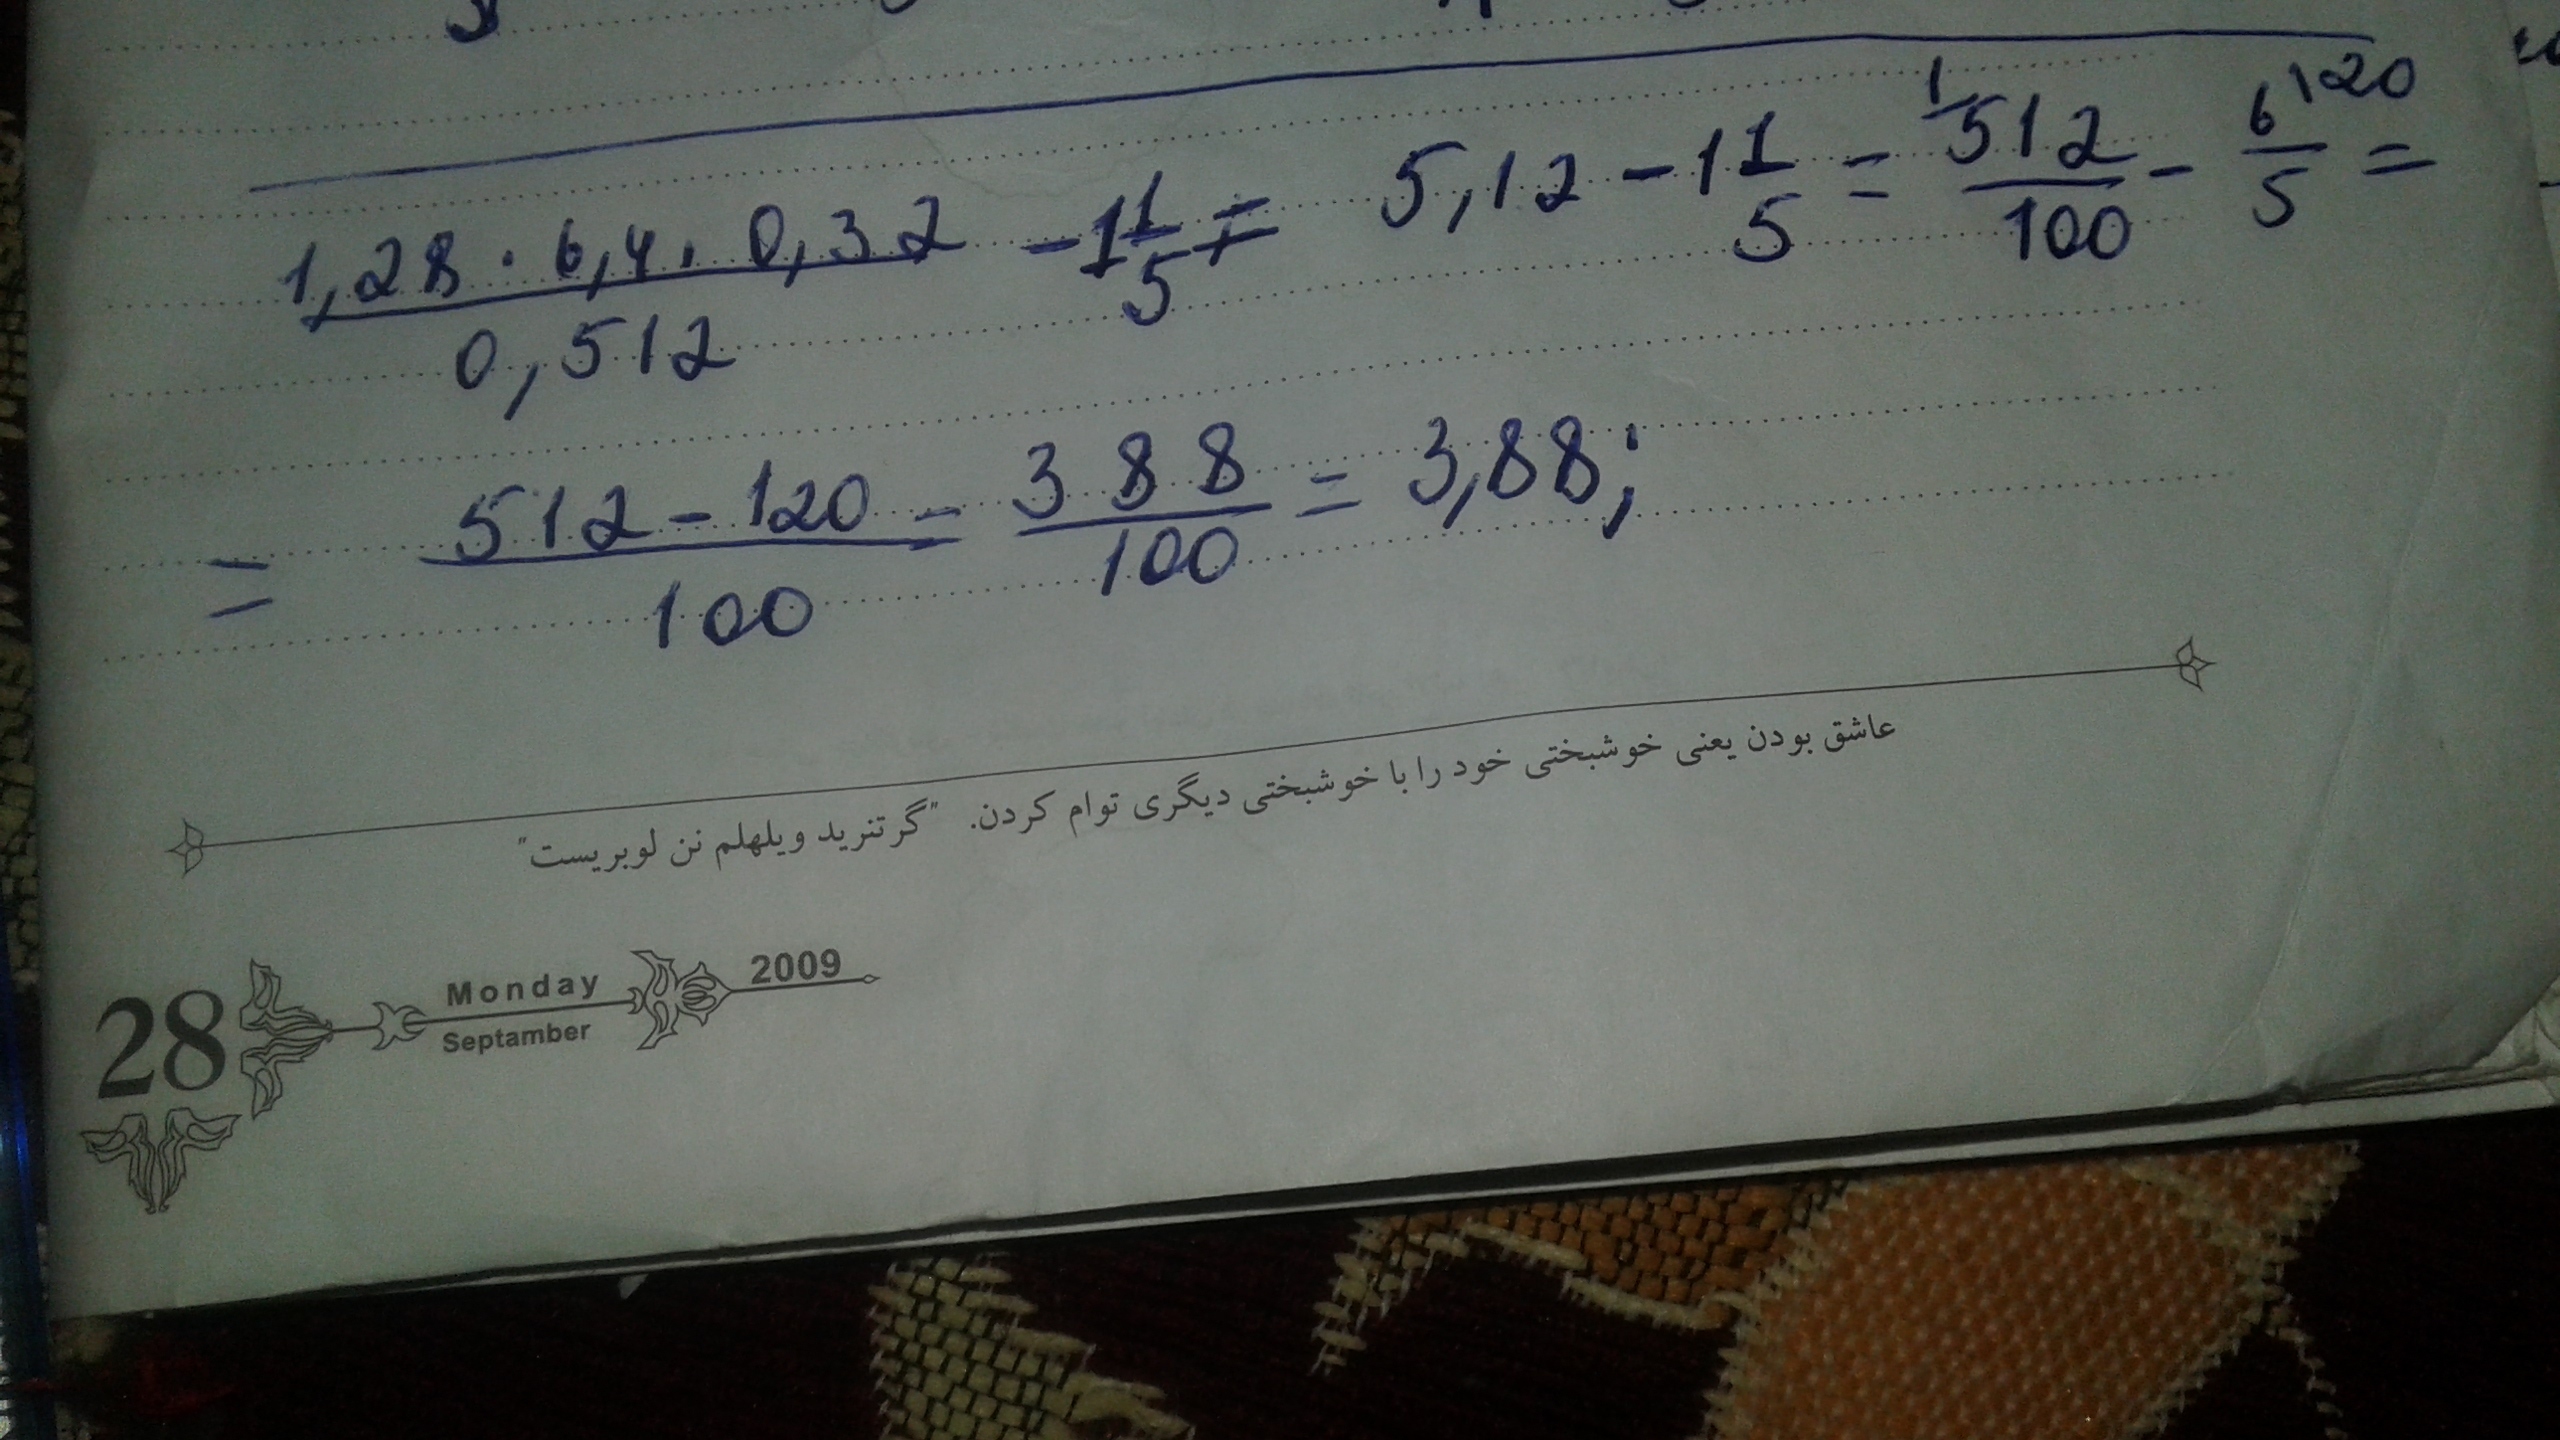 1,28 · 6,4 · 0,32 / 0,512 - 1 1/5 = 5,12 - 1 1/5 = 512/100 - 6/5 =
1 120
= 512 - 120 / 100 = 388/100 = 3,88;
عاشق بودن یعنی خوشبختی خود را با خوشبختی دیگری توام کردن. "گرتنرید ویلهلم نن لوبریست"
28 Monday 2009
Septamber